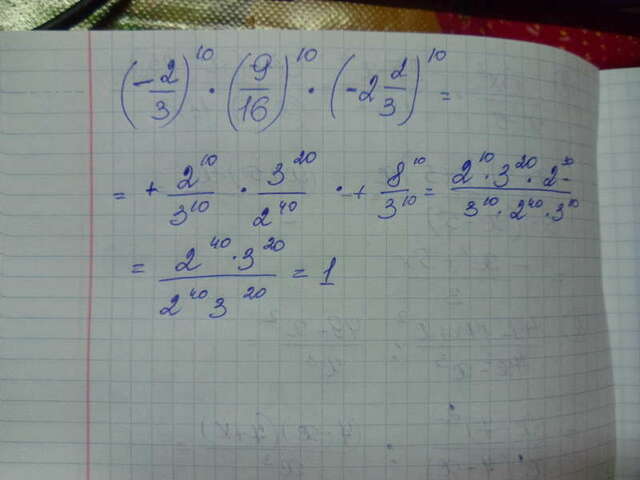 (-2/3)^10 · (9/16)^10 · (-2 2/3)^10 =
= + 2^10/3^10 · 3^20/2^40 · + 8^10/3^10 = 2^10 · 3^20 · 2^30/3^10 · 2^40 · 3^10
= 2^40 · 3^20/2^40 3^20 = 1